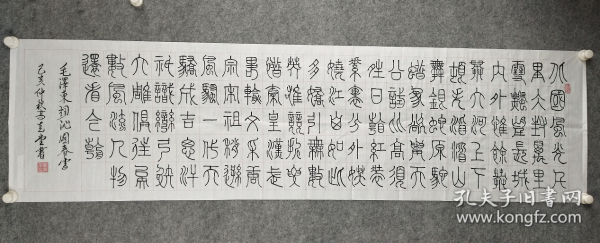 北國風光千
里冰封萬里
雪飄望長城
內外惟餘莽
莽大河上下
頓失滔滔山
舞銀蛇原馳
蠟象欲與天
公試比高須
晴日看紅裝
素裹分外妖
嬈江山如此
多嬌引無數
英雄競折腰
惜秦皇漢武
略輸文采唐
宗宋祖稍遜
風騷一代天
驕成吉思汗
只識彎弓射
大雕俱往矣
數風流人物
還看今朝
毛澤東詞沁園春雪
己亥仲秋書
孔夫子旧书网
www.kongfz.com